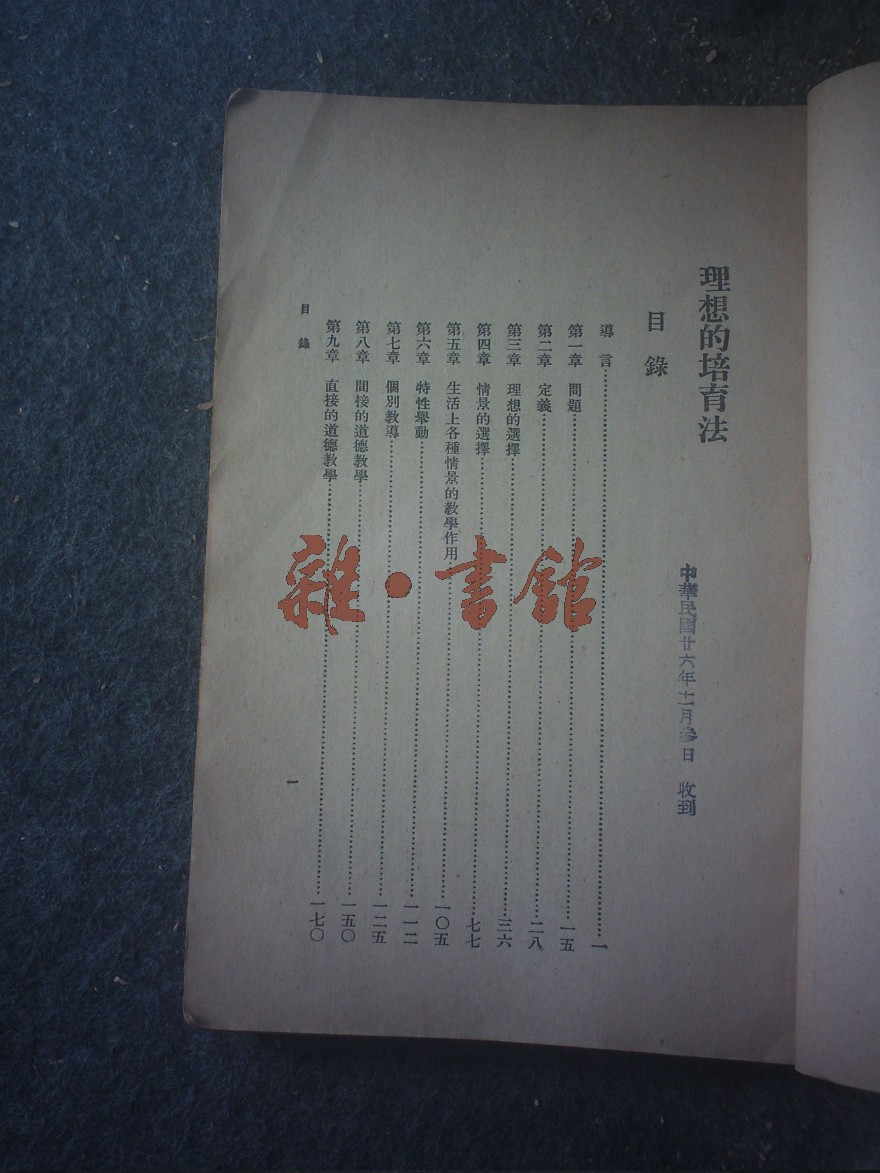 理想的培育法
中華民國廿六年十一月叁日　收到
目錄
導言……一
第一章　問題……一五
第二章　定義……二八
第三章　理想的選擇……三六
第四章　情景的選擇……七七
第五章　生活上各種情景的教學作用……一〇五
第六章　特性舉動……一一二
第七章　個別教導……一二五
第八章　間接的道德教學……一五〇
第九章　直接的道德教學……一七〇
目錄
一
雜·書館